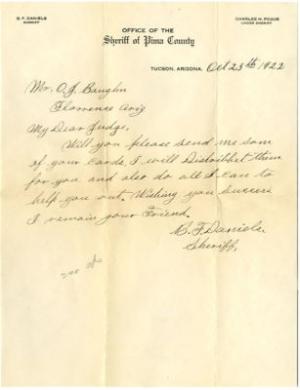 B. F. DANIELS
SHERIFF
CHARLES H. FOGUS
UNDER SHERIFF
OFFICE OF THE
Sheriff of Pima County
TUCSON, ARIZONA, Oct 23th 1922
Mr. O J Baughn
Florence Ariz
My Dear Judge,
Will you please send me som
of your Cards I will Distribet them
for you and also do all I can to
help you out. Wishing you success
I remain your Friend.
B. F. Daniels
Sheriff,